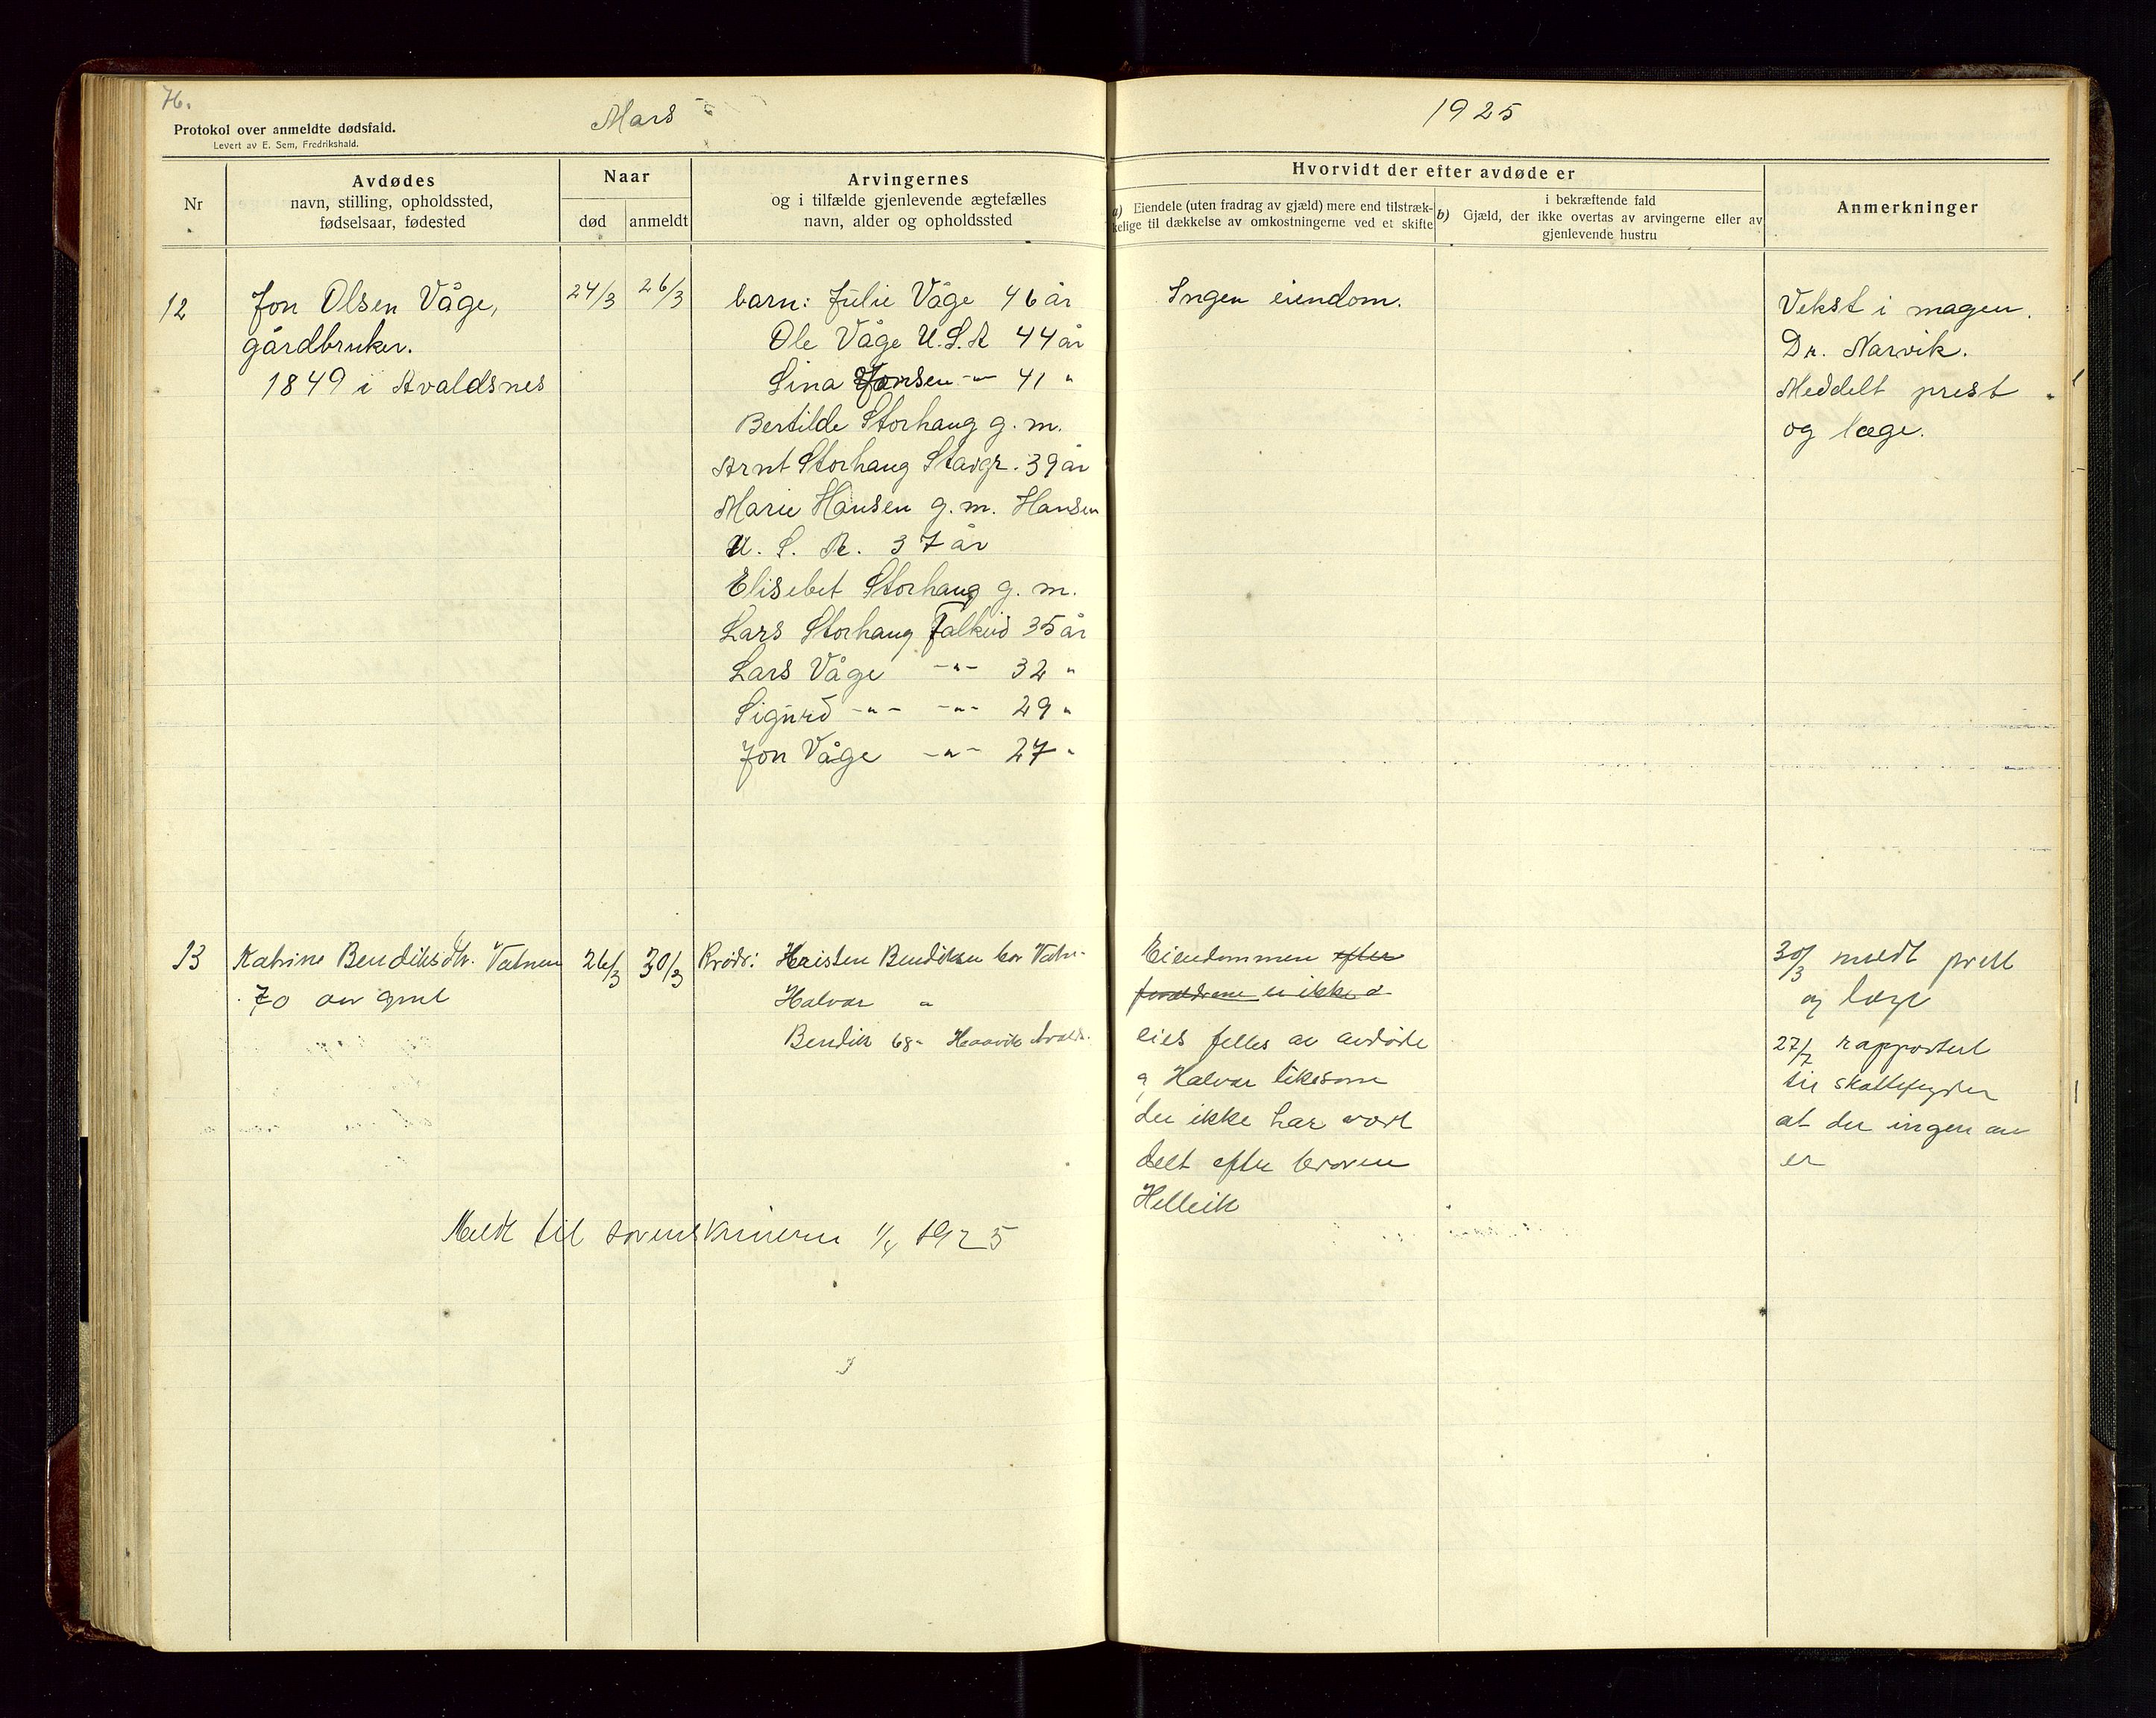 76.
Protokol over anmeldte dødsfald.
Levert av E. Sem, Fredrikshald.
Mars
1925
Nr
Avdødes
navn, stilling, opholdssted,
fødselsaar, fødested
Naar
død
anmeldt
Arvingernes
og i tilfælde gjenlevende ægtefælles
navn, alder og opholdssted
Hvorvidt der efter avdøde er
a) Eiendele (uten fradrag av gjæld) mere end tilstræk-
kelige til dækkelse av omkostningerne ved et skifte
b)
i bekræftende fald
Gjæld, der ikke overtas av arvingerne eller av
gjenlevende hustru
Anmerkninger
12
Jon Olsen Våge,
gårdbruker.
1849 i Avaldsnes
24/3
26/3
barn: Julie Våge 46 år
Ole Våge U.S.A 44 år
Lina Jonsen -"- 41 "
Bertilde Storhaug g. m.
Arnt Storhaug Stavgr. 39 år
Marie Hansen g. m. Hansen
U. S. A. 37 år
Elisebet Storhaug g. m.
Lars Storhaug Falkeid 35 år
Lars Våge -"- 32 "
Sigurd -"- -"- 29 "
Jon Våge -"- 27 "
Ingen eiendom.
Vekst i magen.
Dr. Narvik.
Meddelt prest
og læge.
13
Katrine Bendiksdtr. Vatnen
70 aar gml
26/3
30/3
Brødr: Kristen Bendiksen bor Vatn-
Halvar "
Bendik 68 - Haavik Avalds.
Eiendommen efter
forældrene er ikke
eies felles av avdøde
og Halvar likesom
der ikke har vært
delt efter broren
Helleik
30/3 meldt prest
og læge
27/7 rapportert
til skattefogden
at der ingen arv
er
Meldt til sorenskriveren 1/4 1925